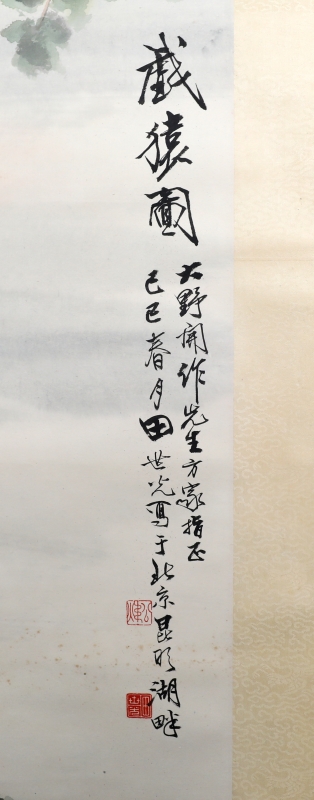 戲猿圖
大野開作先生方家指正
己巳春月田世光寫于北京昆明湖畔